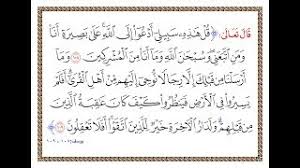 قَالَ تَعَالَى: ﴿قُلْ هَٰذِهِۦ سَبِيلِىٓ أَدْعُوٓا۟ إِلَى ٱللَّهِ عَلَىٰ بَصِيرَةٍ أَنَا۠
وَمَنِ ٱتَّبَعَنِى وَسُبْحَٰنَ ٱللَّهِ وَمَآ أَنَا۠ مِنَ ٱلْمُشْرِكِينَ ١٠٨ وَمَآ
أَرْسَلْنَا مِن قَبْلِكَ إِلَّا رِجَالًا نُّوحِىٓ إِلَيْهِم مِّنْ أَهْلِ ٱلْقُرَىٰٓ أَفَلَمْ
يَسِيرُوا۟ فِى ٱلْأَرْضِ فَيَنظُرُوا۟ كَيْفَ كَانَ عَٰقِبَةُ ٱلَّذِينَ
مِن قَبْلِهِمْ وَلَدَارُ ٱلْءَاخِرَةِ خَيْرٌ لِّلَّذِينَ ٱتَّقَوْا۟ أَفَلَا تَعْقِلُونَ ١٠٩﴾